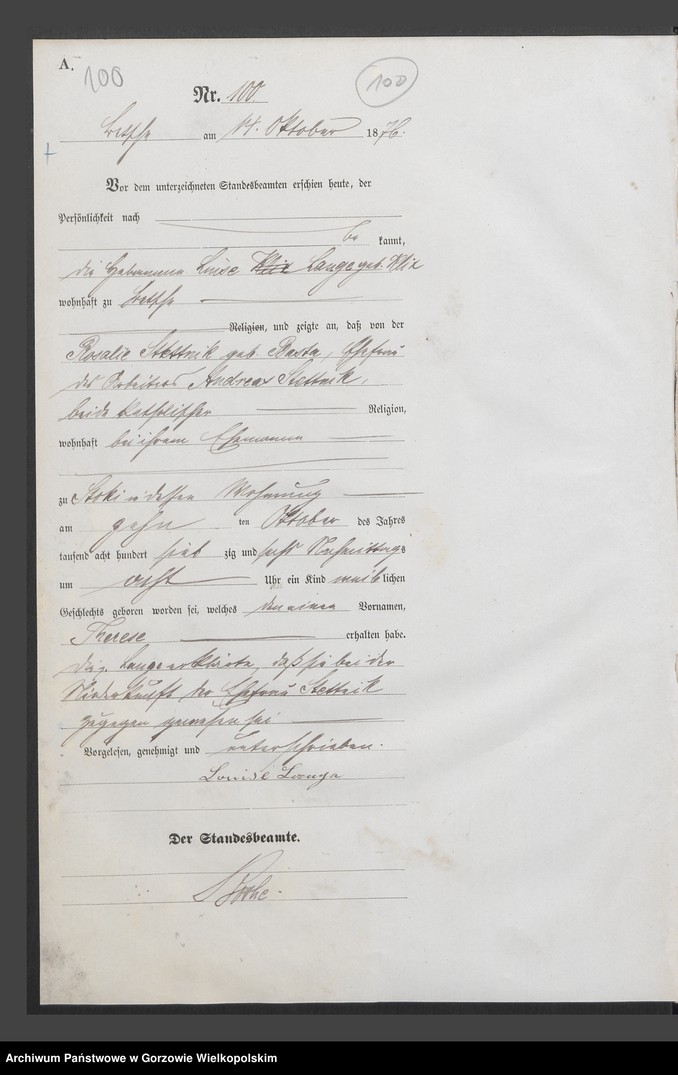 A.
100
100
Nr. 100.
Betsche am 14. Oktober 1876.
Vor dem unterzeichneten Standesbeamten erschien heute, der
Persönlichkeit nach
be kannt,
die Hebamme Luise Klix Lange geb. Klix
wohnhaft zu Betsche
Religion, und zeigte an, daß von der
Rosalie Stettnik geb. Basta, Ehefrau
des Arbeiters Andreas Stettnik,
beide katholischer Religion,
wohnhaft bei ihrem Ehemanne
zu Stoki in dessen Wohnung
am zehn ten Oktober des Jahres
tausend acht hundert sieb zig und sechs Nachmittags
um acht Uhr ein Kind weiblichen
Geschlechts geboren worden sei, welches den einen Vornamen,
Therese erhalten habe.
Die Lange erklärte, daß sie bei der
Niederkunft der Ehefrau Stettnik
zugegen gewesen sei
Vorgelesen, genehmigt und unterschrieben.
Louise Lange
Der Standesbeamte.
Archiwum Państwowe w Gorzowie Wielkopolskim